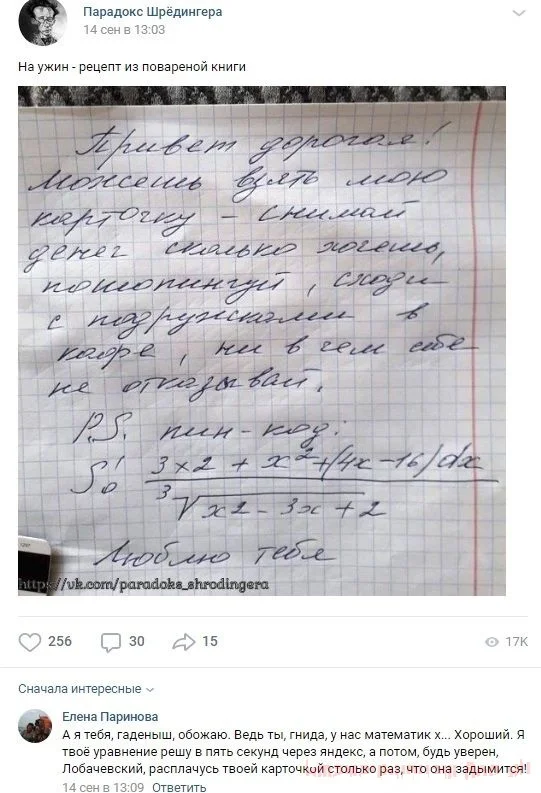 Парадокс Шрёдингера
14 сен в 13:03
На ужин - рецепт из повареной книги
Привет дорогая!
Можешь взять мою
карточку – снимай
денег сколько хочешь,
пошопингуй, сходи
с подружками в
кафе, ни в чем себе
не отказывай.
P.S. пин-код:
∫₀¹ (3×2 + x² + (4x – 16) dx
∛(x2 – 3x + 2)
Люблю тебя
https://vk.com/paradoks_shrodingera
256 30 15 17K
Сначала интересные
Елена Паринова
А я тебя, гаденыш, обожаю. Ведь ты, гнида, у нас математик х... Хороший. Я
твоё уравнение решу в пять секунд через яндекс, а потом, будь уверен,
Лобачевский, расплачусь твоей карточкой столько раз, что она задымится!
14 сен в 13:09 Ответить